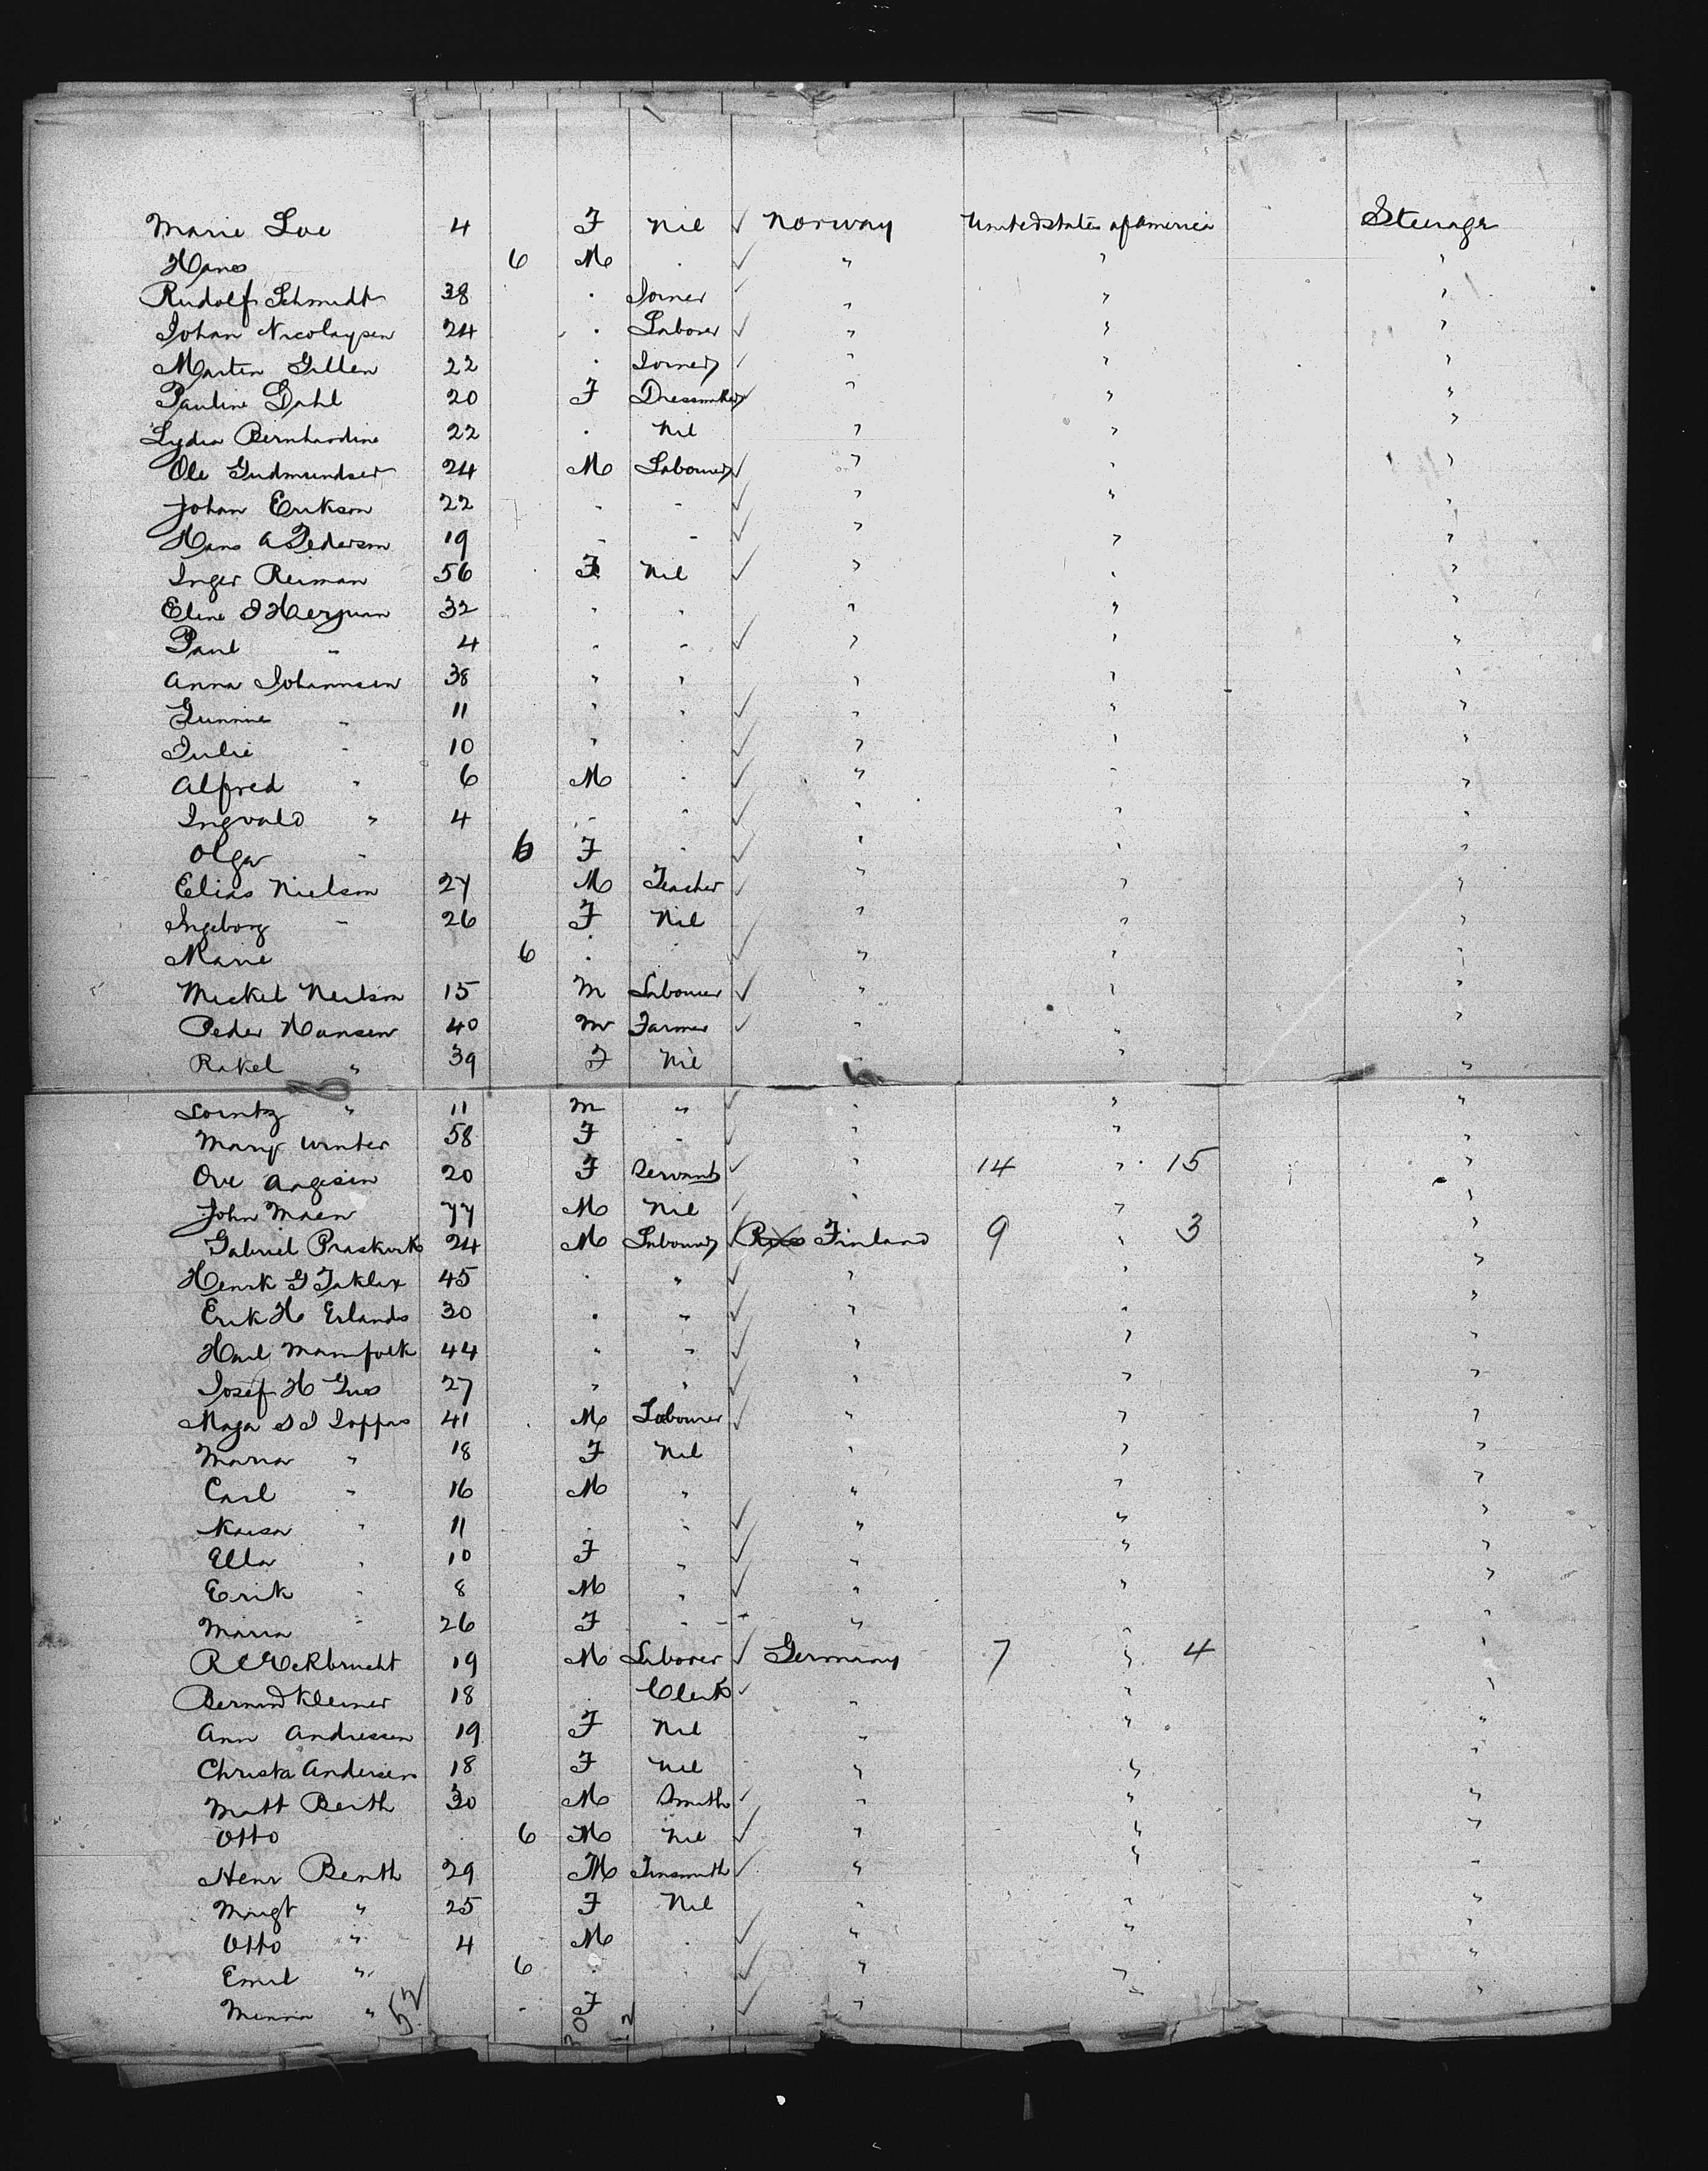 Marie Loe 4 F Nil ✓ Norway United states of America Steerage
Hans 6 M . ✓ " " "
Rudolf Schmidt 38 . Joiner ✓ " " "
Johan Nicolaysen 24 . Laborer ✓ " " "
Martin Gillen 22 . Joiner ✓ " " "
Pauline Dahl 20 F Dressmaker ✓ " " "
Lydia Bernhardine 22 . Nil " " "
Ole Gudmundsen 24 M Labourer ✓ " " "
Johan Erikson 22 " " ✓ " " "
Hans A Pederson 19 " " ✓ " " "
Inger Reiman 56 F Nil ✓ " " "
Eline J Herjuan 32 " " " " "
Paul " 4 " " ✓ " " "
Anna Johannsen 38 " " " " "
Gunnine " 11 " " ✓ " " "
Julie " 10 " " ✓ " " "
Alfred " 6 M " ✓ " " "
Ingvald " 4 " " ✓ " " "
Olga " 6 F " ✓ " " "
Elias Nielson 27 M Teacher ✓ " " "
Ingeborg " 26 F Nil ✓ " " "
Marie 6 . . ✓ " " "
Mickel Neilson 15 M Labourer ✓ " " "
Peder Hansen 40 M Farmer ✓ " " "
Rakel " 39 F Nil " " "
Lorntz " 11 M " ✓ " " "
Mary Winter 58 F " ✓ " " "
Ove 20 F Servant ✓ " 14 " 15 "
John Maen 77 M Nil ✓ " " "
Gabriel 24 M Labourer ✓ Finland 9 " 3 "
Henrik G Taklax 45 . " ✓ " " "
Erik H Erlands 30 . " ✓ " " "
44 " " ✓ " " "
Josef H 27 " " ✓ " " "
Maja 41 M Labourer ✓ " " "
Maria " 18 F Nil " " "
Carl " 16 M " " " "
Kaisa " 11 . " ✓ " " "
Ella " 10 F " ✓ " " "
Erik " 8 M " ✓ " " "
Maria " 26 F " " " "
19 M Laborer ✓ Germany 7 " 4 "
Bernard Kleiner 18 . Clerk ✓ " " "
Ann Andressen 19 F Nil " " "
Christa Andersen 18 F Nil " " "
Matt Berth 30 M Smith ✓ " " "
Otto 6 M Nil ✓ " " "
Henr Benth 29 M Tinsmith ✓ " " "
Margt " 25 F Nil " " "
Otto " 4 M . ✓ " " "
Emil " 6 . . ✓ " " "
Minna " " F . ✓ " " "
52 20 12